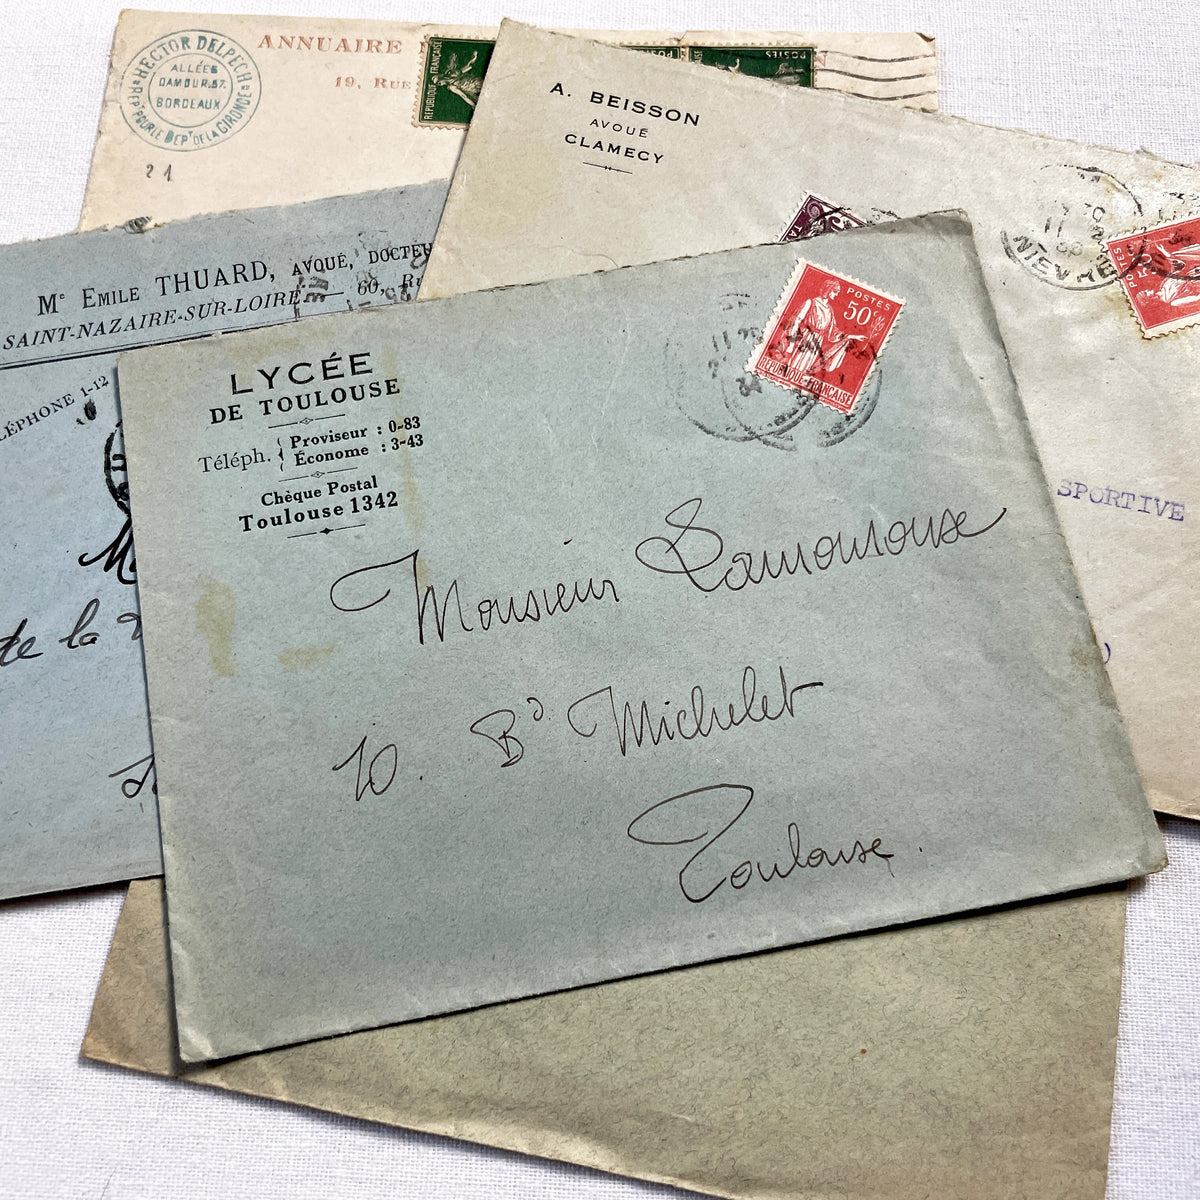 HECTOR DELPECH
ALLÉES
DAMOUR.57.
BORDEAUX
REPT POUR LE DEPT DE LA GIRONDE
21
ANNUAIRE
19, RUE
REPUBLIQUE FRANÇAISE
POSTES
A. BEISSON
AVOUÉ
CLAMECY
NIEVRE
POSTES
SPORTIVE
Me EMILE THUARD, AVOUÉ,
SAINT-NAZAIRE-SUR-LOIRE
60,
1-12
de la
LYCÉE
DE TOULOUSE
Téléph. { Proviseur : 0-83
Économe : 3-43
Chèque Postal
Toulouse 1342
POSTES
50c
REPUBLIQUE FRANÇAISE
Monsieur Lamouroux
10. Bd Michelet
Toulouse.